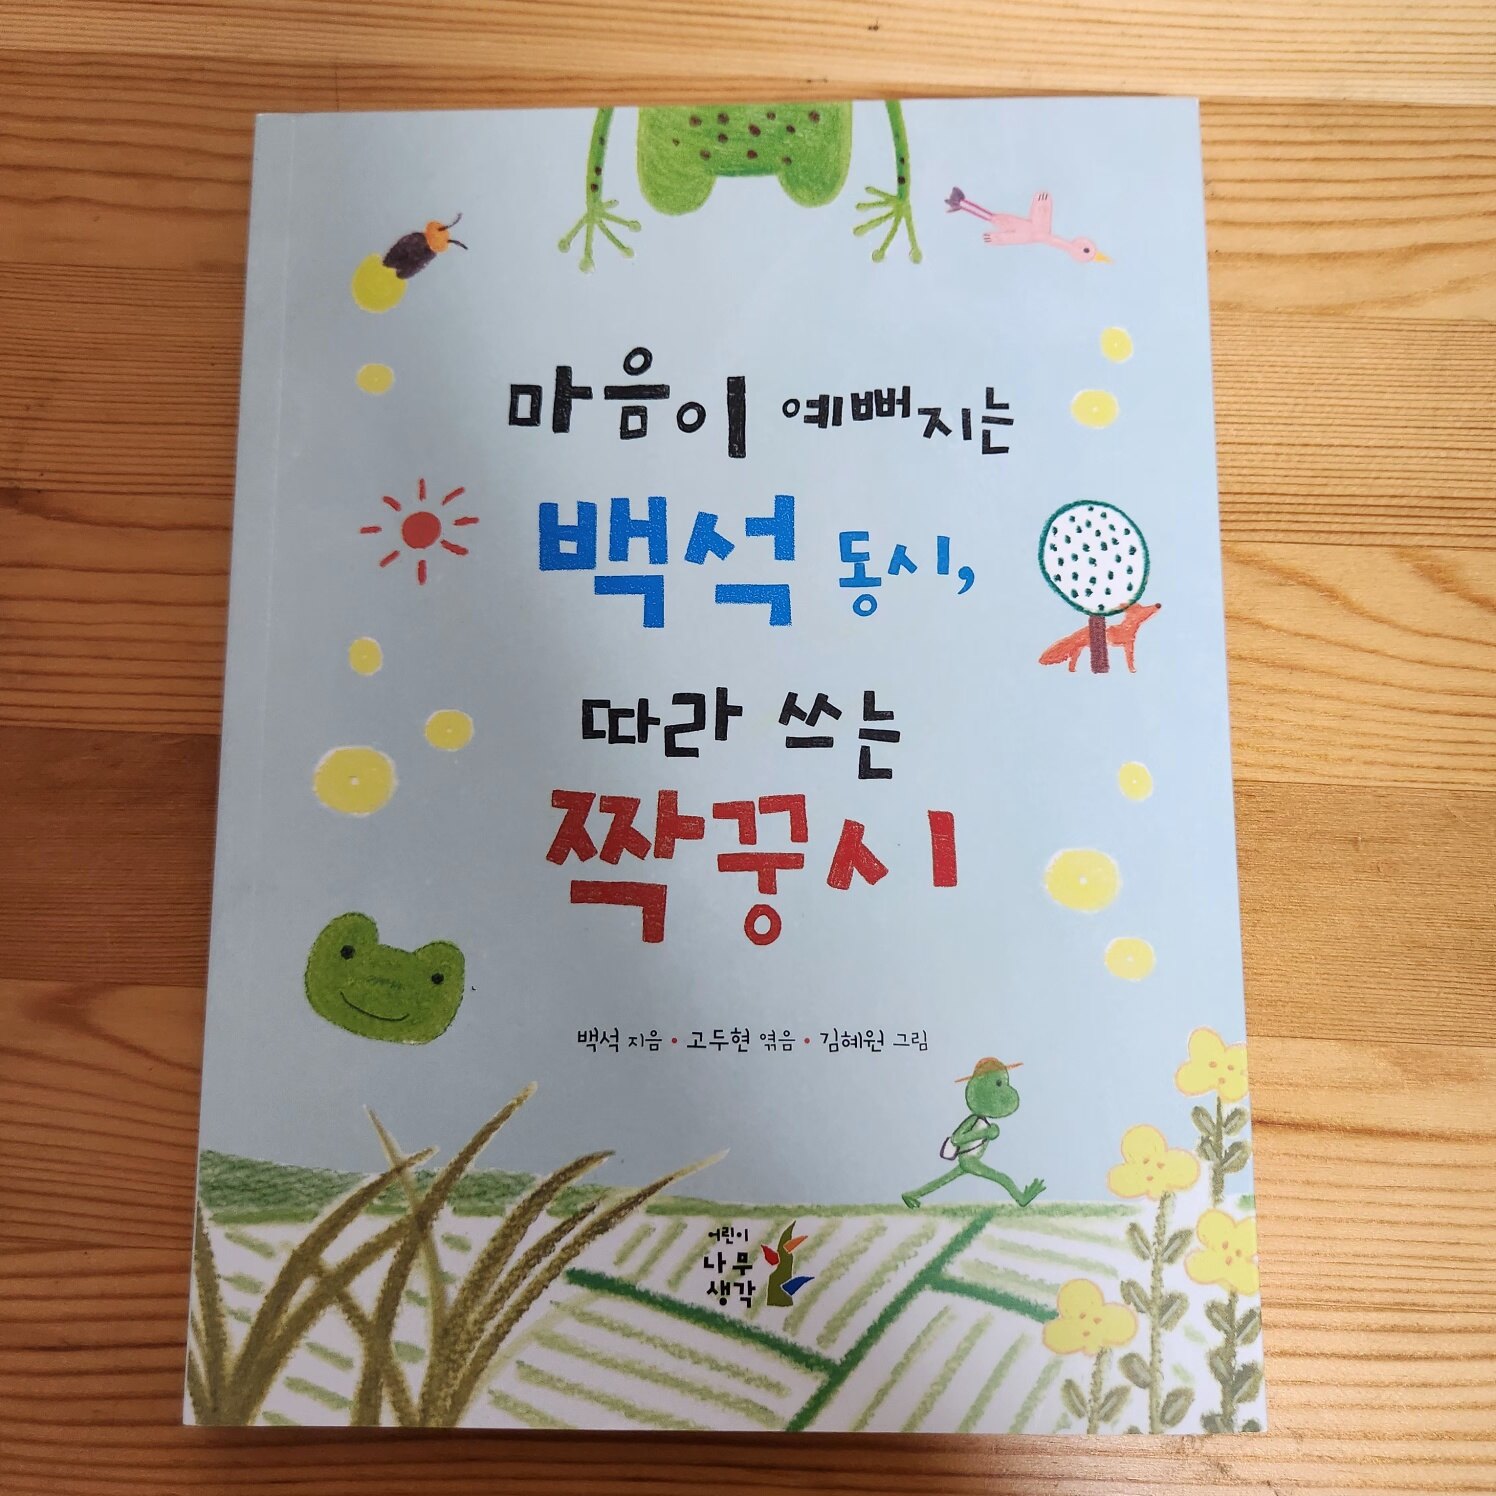 마음이 예뻐지는
백석 동시,
따라 쓰는
짝꿍시
백석 지음 • 고두현 엮음 • 김혜원 그림
어린이
나무
생각